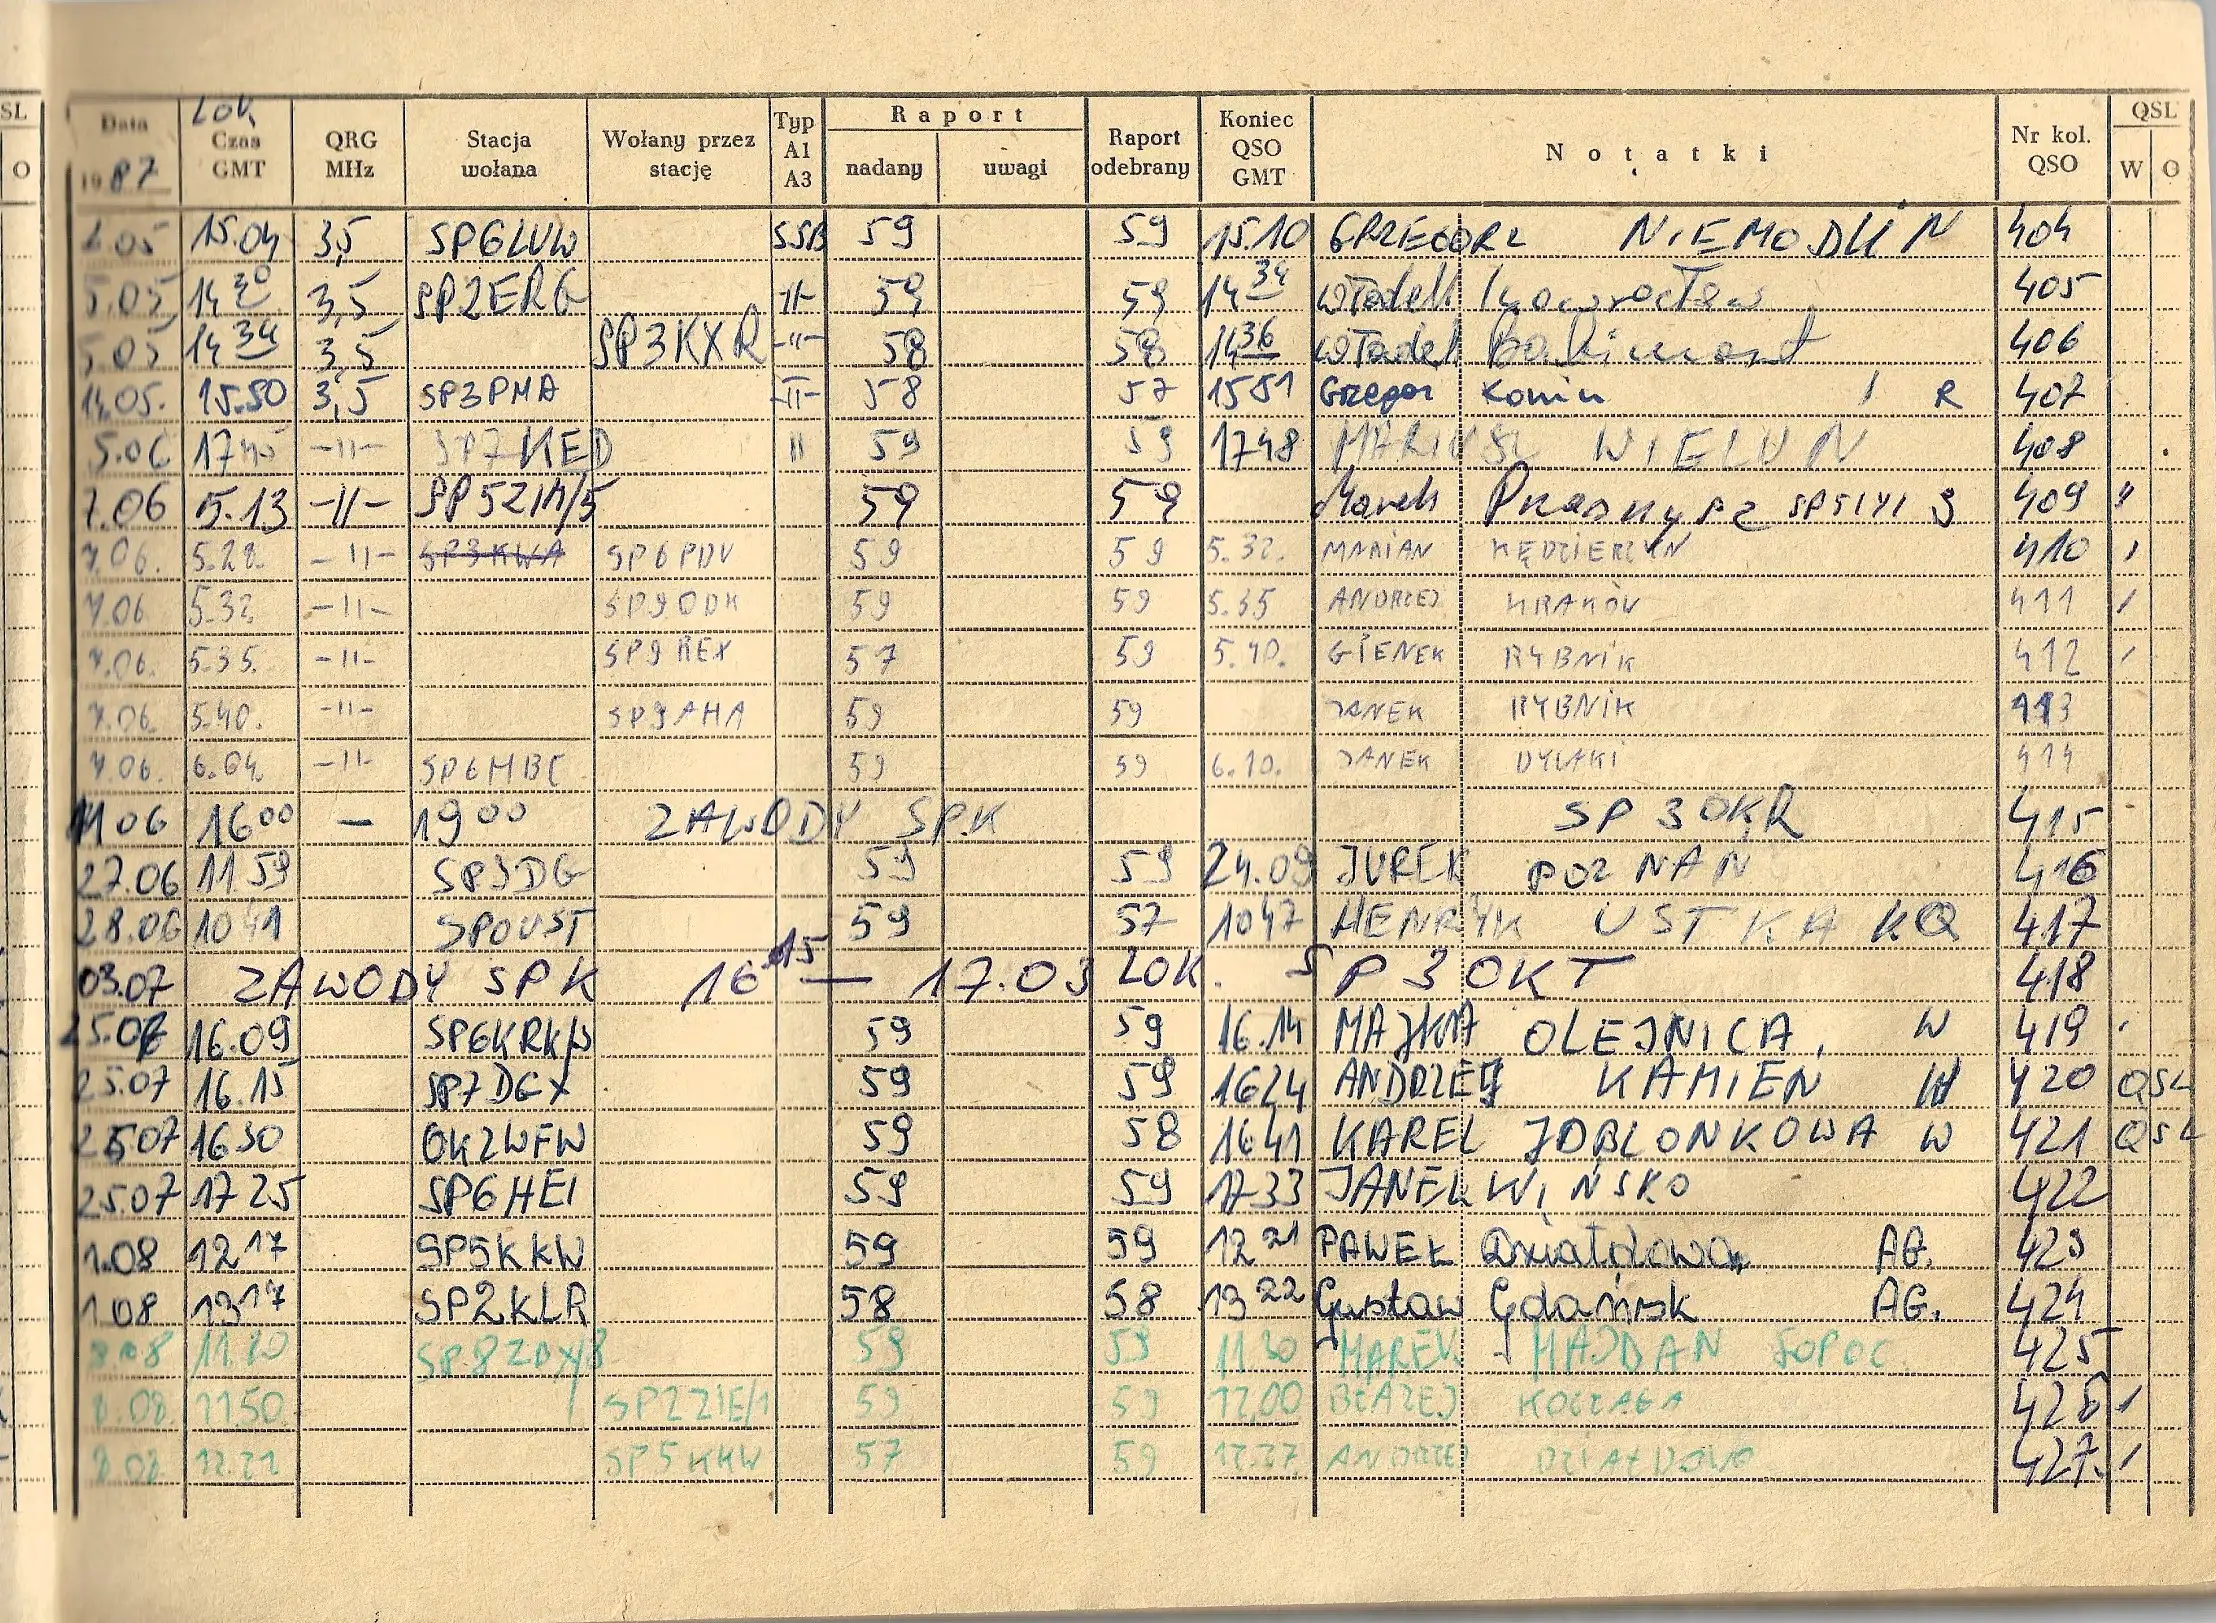 SL
O
Data 1987 Lok. Czas GMT QRG MHz Stacja wołana Wołany przez stację Typ A1 A3 Raport nadany uwagi Raport odebrany Koniec QSO GMT Notatki Nr kol. QSO QSL W O
15.04 3,5 SP6LUW SSB 59 59 15.10 GRZEGORZ NIEMODLIN 404
5.05 14 30 3,5 SP2ERG -"- 59 59 14 34 Władek Inowrocław 405
5.05 14 34 3,5 SP3KXR -"- 58 58 14 36 Władek 406
14.05. 15.50 3,5 SP3PMA -"- 58 57 15 51 Grzegor Konin R 407
5.06 17 45 -"- SP7KED " 59 59 17 48 MARIUSZ WIELUN 408
7.06 5.13 -"- 59 59 Marek 409 "
7.06. 5.22. -"- SP6PDV 59 59 5.32. MARIAN KĘDZIERZYN 410
7.06 5.32 -"- SP9ODK 59 59 5.35 ANDRZEJ KRAKÓW 411
7.06. 5.35. -"- SP9REX 57 59 5.40. GIENEK RYBNIK 412
7.06. 5.40. -"- SP9AHA 59 59 JANEK RYBNIK 413
7.06. 6.04. -"- SP6HBC 59 59 6.10. JANEK DYLAKI 414
11 06 16 00 — 19 00 ZAWODY SP.K SP3OKR 415
27.06 11 59 59 59 JUREK POZNAN 416
28.06 10 41 SP0UST 59 57 10 47 HENRYK USTKA KQ 417
03.07 ZAWODY SPK 16 15 — 17.03 LOK. SP3OKT 418
25.07 16.09 59 59 16.14 OLEJNICA W 419
25.07 16.15 SP7DGX 59 59 16 24 ANDRZEJ KAMIEN W 420 QSL
25.07 16 30 OK2WFW 59 58 16 41 KAREL JABLONKOWA W 421 QSL
25.07 17 25 SP6HEI 59 59 17 33 JANEK WIŃSKO 422
1.08 12 17 SP5KKW 59 59 12 21 PAWEŁ Działdowo AG. 423
1.08 13 17 SP2KLR 58 58 13 22 Gustaw Gdańsk AG. 424
8.08 11.20 59 59 11 30 MAREK MAJDAN SOPOC 425
8.08. 11 50 SP2ZIE/1 59 59 12,00 BŁAŻEJ 426
8.08 12.21 SP5KKW 57 59 12.27 ANDRZEJ DZIAŁDOWO 427.